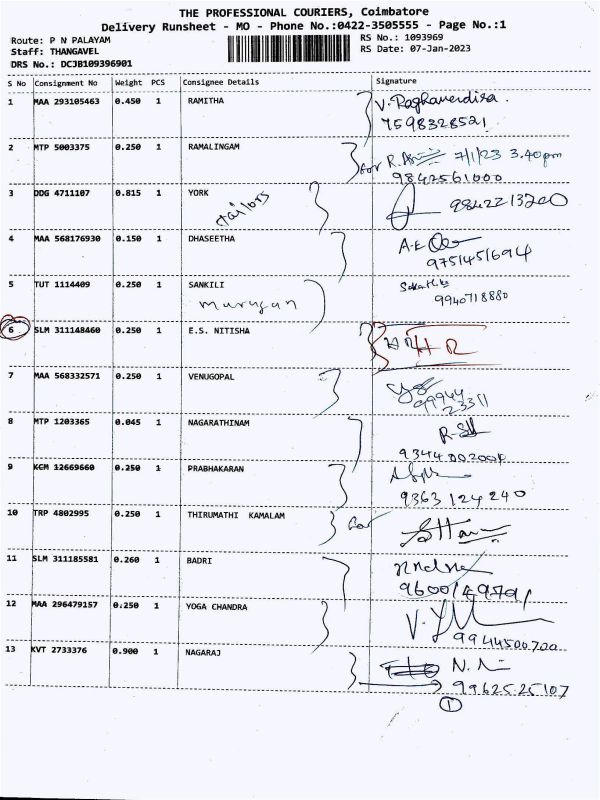 THE PROFESSIONAL COURIERS, Coimbatore
Delivery Runsheet - MO - Phone No.:0422-3505555 - Page No.:1
Route: P N PALAYAM
Staff: THANGAVEL
DRS No.: DCJB109396901
RS No.: 1093969
RS Date: 07-Jan-2023
S No Consignment No Weight PCS Consignee Details Signature
1 MAA 293105463 0.450 1 RAMITHA V. Raghavendira.
7598328521
2 MTP 5003375 0.250 1 RAMALINGAM for 7/1/23 3.40pm
9842561000
3 DDG 4711107 0.815 1 YORK 9842213200
tailors
4 MAA 568176930 0.150 1 DHASEETHA A-E
9751451694
5 TUT 1114409 0.250 1 SANKILI
murugan 9940718880
6 SLM 311148460 0.250 1 E.S. NITISHA H R
7 MAA 568332571 0.250 1 VENUGOPAL
99944
23311
8 MTP 1203365 0.045 1 NAGARATHINAM
9 KCM 12669660 0.250 1 PRABHAKARAN
9363 124 240
10 TRP 4802995 0.250 1 THIRUMATHI KAMALAM for
11 SLM 311185581 0.260 1 BADRI
12 MAA 296479157 0.250 1 YOGA CHANDRA
9944500700
13 KVT 2733376 0.900 1 NAGARAJ N.
9962525107
1